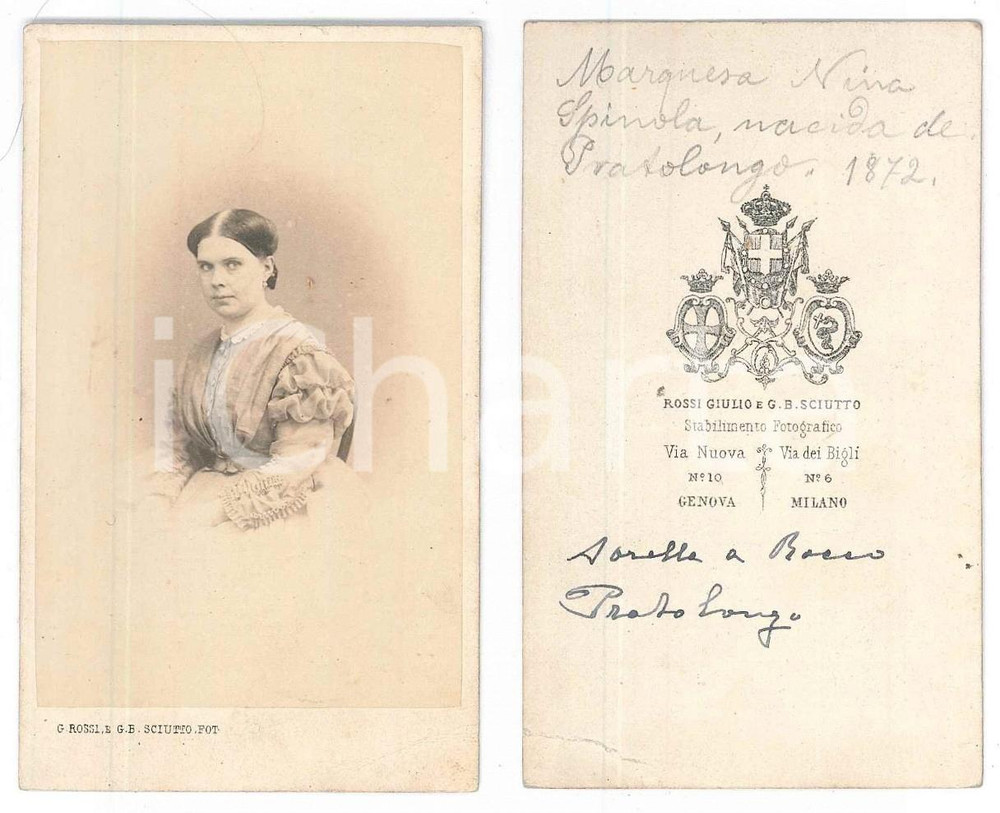 G. ROSSI, E G. B. SCIUTTO, FOT.
Marquesa Nina
Spinola, nacida de
Pratolongo. 1872.
ROSSI GIULIO E G. B. SCIUTTO
Stabilimento Fotografico
Via Nuova Via dei Bigli
Nº 10 Nº 6
GENOVA MILANO
Sorella a Rocco
Pratolongo
iCharta